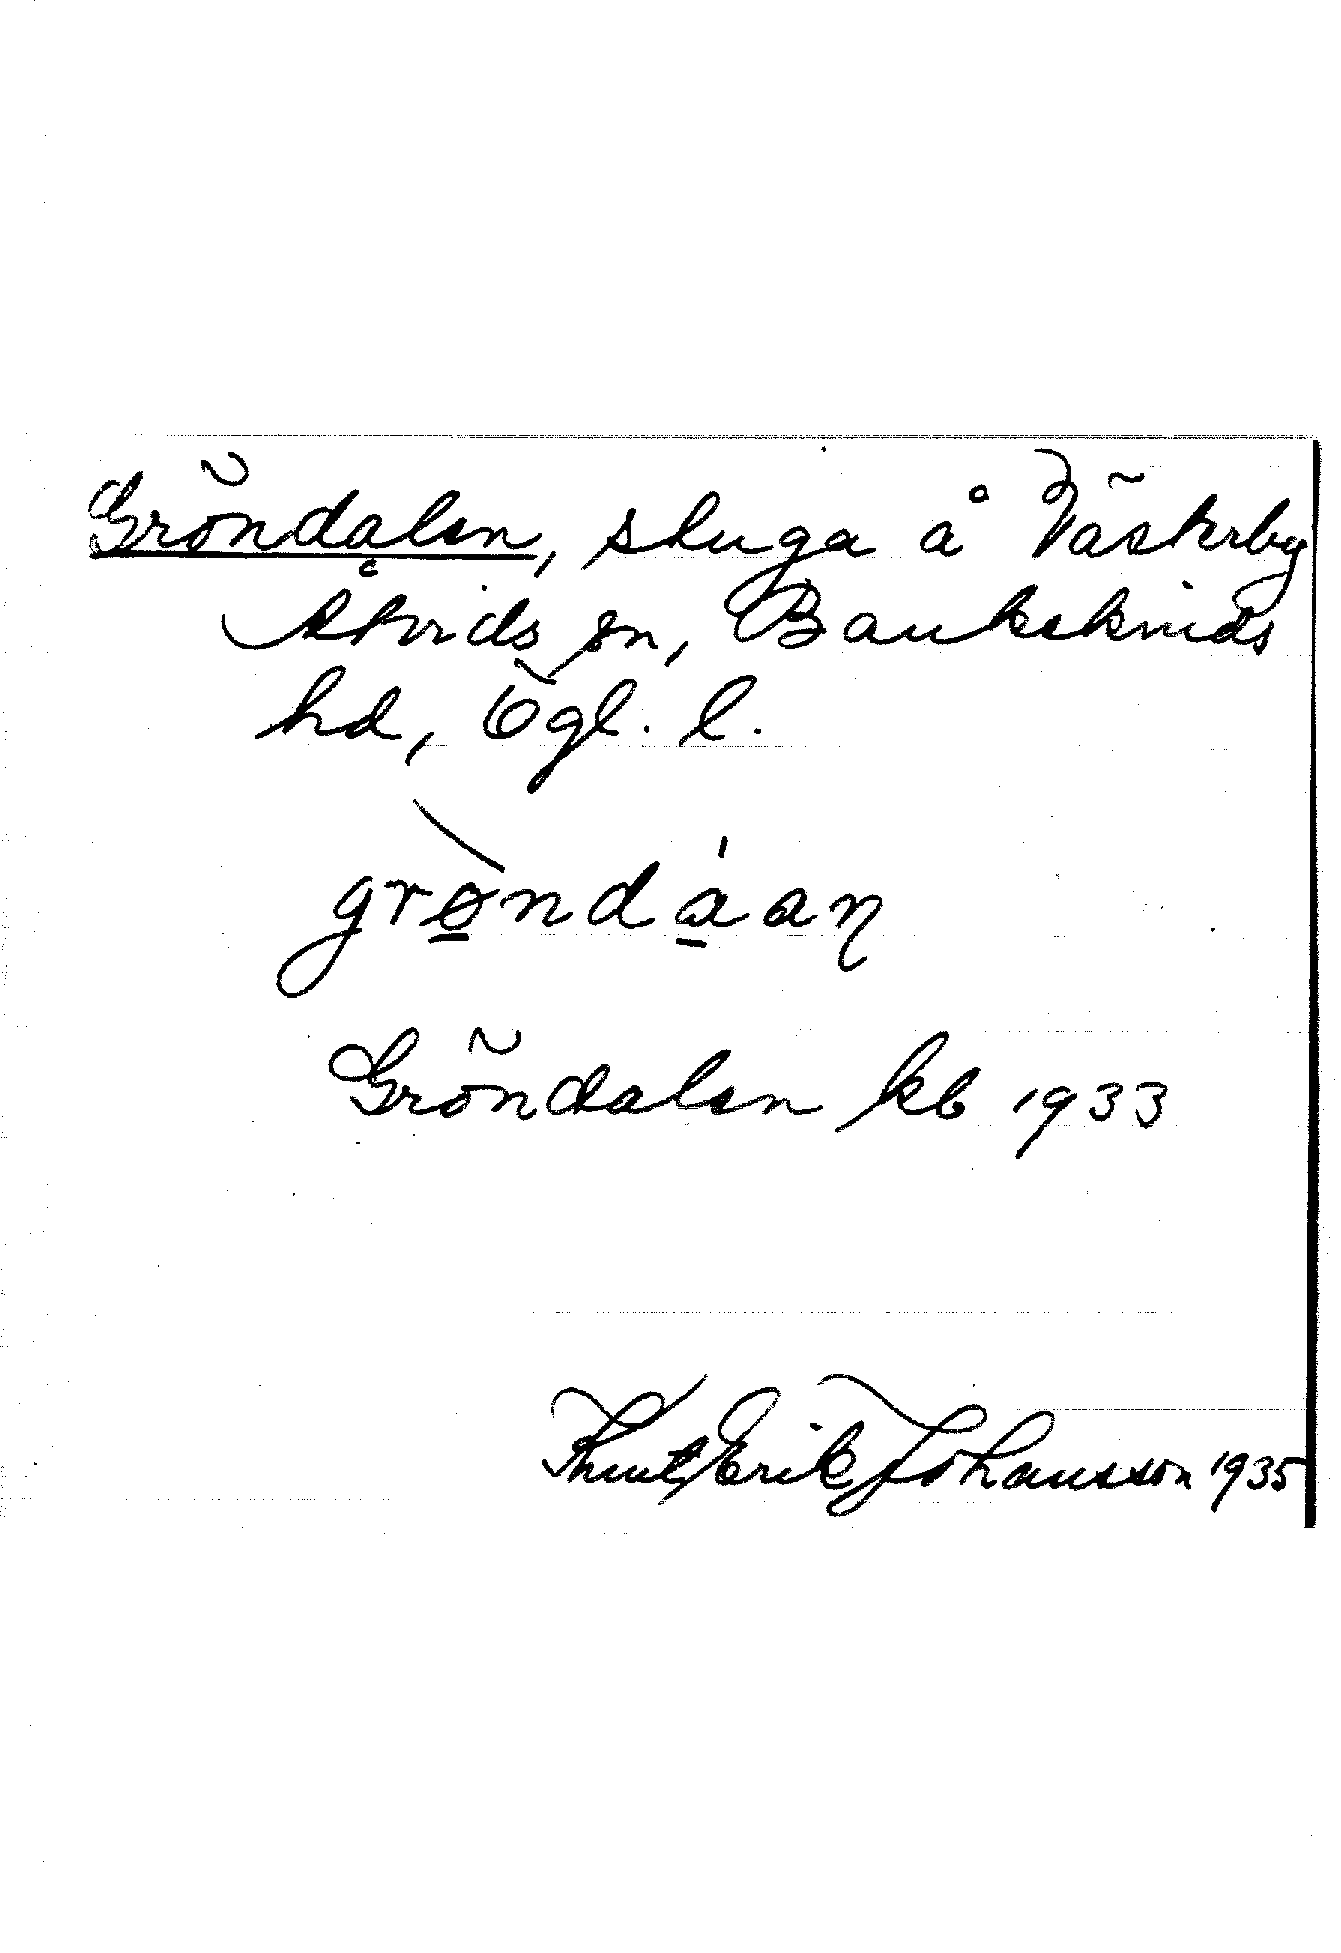 Gröndalen, stuga å Västerby
Åtvids sn, Bankekinds
hd, Ögl. l.
grø̠̀nda̠̍an̥
Gröndalen kb 1933
Knut Erik Johansson 1935